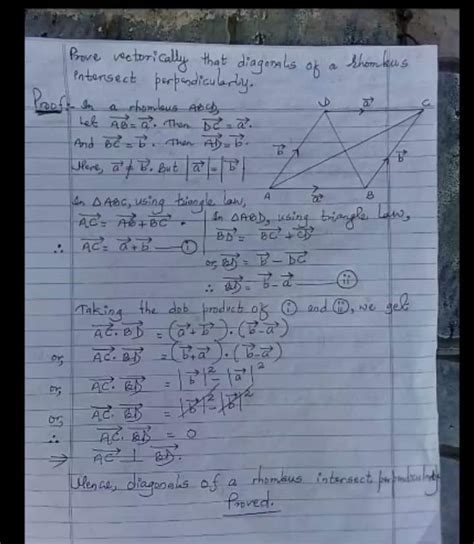 Prove vectorically that diagonals of a rhombus
intersect perpendicularly.
Proof:- In a rhombus ABCD,
Let $\overrightarrow{AB} = \vec{a}$. Then $\overrightarrow{DC} = \vec{a}$.
And $\overrightarrow{BC} = \vec{b}$. Then $\overrightarrow{AD} = \vec{b}$.
Here, $\vec{a} \neq \vec{b}$. But $|\vec{a}| = |\vec{b}|$
D $\vec{a}$ C
$\vec{b}$ $\vec{b}$
A $\vec{a}$ B
In △ABC, using tiangle law,
$\overrightarrow{AC} = \overrightarrow{AB} + \overrightarrow{BC}$.
∴ $\overrightarrow{AC} = \vec{a} + \vec{b}$ — (i)
In △ABD, using triangle law,
$\overrightarrow{BD} = \overrightarrow{BC} + \overrightarrow{CD}$
or, $\overrightarrow{BD} = \vec{b} - \overrightarrow{DC}$
∴ $\overrightarrow{BD} = \vec{b} - \vec{a}$ — (ii)
Taking the dob product of (i) and (ii), we get
$\overrightarrow{AC} \cdot \overrightarrow{BD} = (\vec{a} + \vec{b}) \cdot (\vec{b} - \vec{a})$
or, $\overrightarrow{AC} \cdot \overrightarrow{BD} = (\vec{b} + \vec{a}) \cdot (\vec{b} - \vec{a})$
or, $\overrightarrow{AC} \cdot \overrightarrow{BD} = |\vec{b}|^2 - |\vec{a}|^2$
or, $\overrightarrow{AC} \cdot \overrightarrow{BD} = |\vec{b}|^2 - |\vec{b}|^2$
∴ $\overrightarrow{AC} \cdot \overrightarrow{BD} = 0$
⇒ $\overrightarrow{AC} \perp \overrightarrow{BD}$.
Hence, diagonals of a rhombus intersect perpendicularly
Proved.